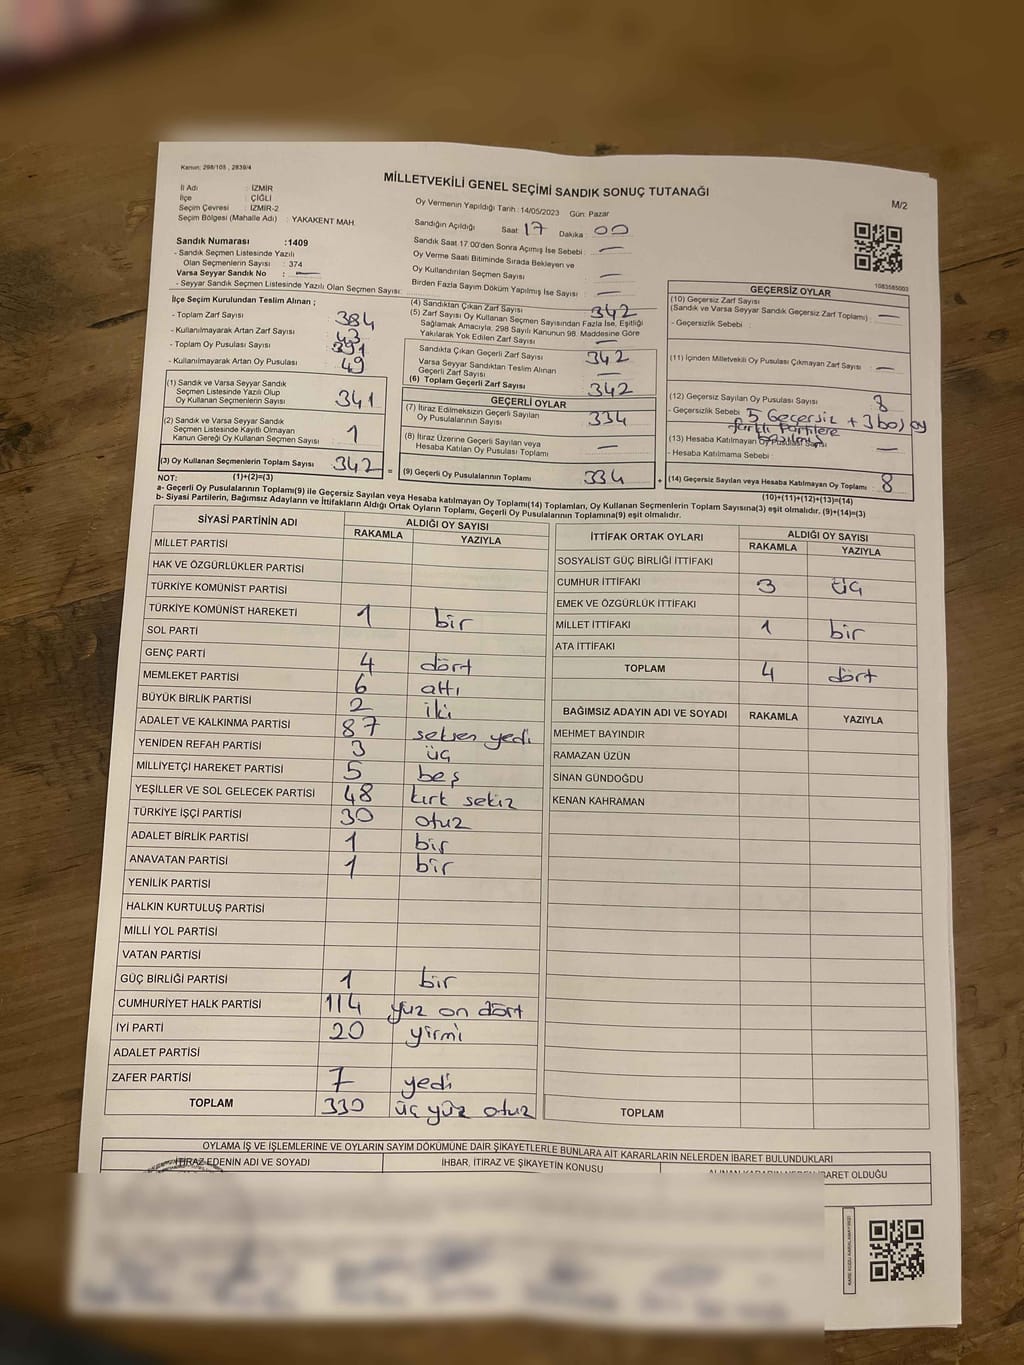 Kanun: 298/105 , 2839/4
MİLLETVEKİLİ GENEL SEÇİMİ SANDIK SONUÇ TUTANAĞI
M/2
İl Adı : İZMİR
İlçe : ÇİĞLİ
Seçim Çevresi : İZMİR-2
Seçim Bölgesi (Mahalle Adı) : YAKAKENT MAH.
Sandık Numarası :1409
- Sandık Seçmen Listesinde Yazılı
Olan Seçmenlerin Sayısı : 374
Varsa Seyyar Sandık No : —
- Seyyar Sandık Seçmen Listesinde Yazılı Olan Seçmen Sayısı:
Oy Vermenin Yapıldığı Tarih : 14/05/2023 Gün: Pazar
Sandığın Açıldığı Saat 17 Dakika 00
Sandık Saat 17:00'den Sonra Açılmış İse Sebebi —
Oy Verme Saati Bitiminde Sırada Bekleyen ve
Oy Kullandırılan Seçmen Sayısı —
Birden Fazla Sayım Döküm Yapılmış İse Sayısı —
1083585003
İlçe Seçim Kurulundan Teslim Alınan ;
- Toplam Zarf Sayısı 384
- Kullanılmayarak Artan Zarf Sayısı 43
- Toplam Oy Pusulası Sayısı 391
- Kullanılmayarak Artan Oy Pusulası 49
(1) Sandık ve Varsa Seyyar Sandık
Seçmen Listesinde Yazılı Olup
Oy Kullanan Seçmenlerin Sayısı 341
(2) Sandık ve Varsa Seyyar Sandık
Seçmen Listesinde Kayıtlı Olmayan
Kanun Gereği Oy Kullanan Seçmen Sayısı 1
(3) Oy Kullanan Seçmenlerin Toplam Sayısı 342 =
(4) Sandıktan Çıkan Zarf Sayısı 342
(5) Zarf Sayısı Oy Kullanan Seçmen Sayısından Fazla İse, Eşitliği
Sağlamak Amacıyla, 298 Sayılı Kanunun 98. Maddesine Göre
Yakılarak Yok Edilen Zarf Sayısı —
Sandıkta Çıkan Geçerli Zarf Sayısı 342
Varsa Seyyar Sandıktan Teslim Alınan
Geçerli Zarf Sayısı —
(6) Toplam Geçerli Zarf Sayısı 342
GEÇERLİ OYLAR
(7) İtiraz Edilmeksizin Geçerli Sayılan
Oy Pusulalarının Sayısı 334
(8) İtiraz Üzerine Geçerli Sayılan veya
Hesaba Katılan Oy Pusulası Toplamı —
(9) Geçerli Oy Pusulalarının Toplamı 334 +
GEÇERSİZ OYLAR
(10) Geçersiz Zarf Sayısı
(Sandık ve Varsa Seyyar Sandık Geçersiz Zarf Toplamı) : —
- Geçersizlik Sebebi :
(11) İçinden Milletvekili Oy Pusulası Çıkmayan Zarf Sayısı —
(12) Geçersiz Sayılan Oy Pusulası Sayısı 8
- Geçersizlik Sebebi 5 Geçersiz + 3 boş oy
farklı partilere
(13) Hesaba Katılmayan Oy Pusulası Sayısı —
- Hesaba Katılmama Sebebi :
(14) Geçersiz Sayılan veya Hesaba Katılmayan Oy Toplamı 8
NOT: (1)+(2)=(3) (10)+(11)+(12)+(13)=(14)
a- Geçerli Oy Pusulalarının Toplamı(9) ile Geçersiz Sayılan veya Hesaba katılmayan Oy Toplamı(14) Toplamları, Oy Kullanan Seçmenlerin Toplam Sayısına(3) eşit olmalıdır. (9)+(14)=(3)
b- Siyasi Partilerin, Bağımsız Adayların ve İttifakların Aldığı Ortak Oyların Toplamı, Geçerli Oy Pusulalarının Toplamına(9) eşit olmalıdır.
SİYASİ PARTİNİN ADI ALDIĞI OY SAYISI
RAKAMLA YAZIYLA
MİLLET PARTİSİ
HAK VE ÖZGÜRLÜKLER PARTİSİ
TÜRKİYE KOMÜNİST PARTİSİ
TÜRKİYE KOMÜNİST HAREKETİ 1 bir
SOL PARTİ
GENÇ PARTİ 4 dört
MEMLEKET PARTİSİ 6 altı
BÜYÜK BİRLİK PARTİSİ 2 iki
ADALET VE KALKINMA PARTİSİ 87 seksen yedi
YENİDEN REFAH PARTİSİ 3 üç
MİLLİYETÇİ HAREKET PARTİSİ 5 beş
YEŞİLLER VE SOL GELECEK PARTİSİ 48 kırk sekiz
TÜRKİYE İŞÇİ PARTİSİ 30 otuz
ADALET BİRLİK PARTİSİ 1 bir
ANAVATAN PARTİSİ 1 bir
YENİLİK PARTİSİ
HALKIN KURTULUŞ PARTİSİ
MİLLİ YOL PARTİSİ
VATAN PARTİSİ
GÜÇ BİRLİĞİ PARTİSİ 1 bir
CUMHURİYET HALK PARTİSİ 114 yüz on dört
İYİ PARTİ 20 yirmi
ADALET PARTİSİ
ZAFER PARTİSİ 7 yedi
TOPLAM 330 üç yüz otuz
İTTİFAK ORTAK OYLARI ALDIĞI OY SAYISI
RAKAMLA YAZIYLA
SOSYALİST GÜÇ BİRLİĞİ İTTİFAKI
CUMHUR İTTİFAKI 3 üç
EMEK VE ÖZGÜRLÜK İTTİFAKI
MİLLET İTTİFAKI 1 bir
ATA İTTİFAKI
TOPLAM 4 dört
BAĞIMSIZ ADAYIN ADI VE SOYADI RAKAMLA YAZIYLA
MEHMET BAYINDIR
RAMAZAN ÜZÜN
SİNAN GÜNDOĞDU
KENAN KAHRAMAN
TOPLAM
OYLAMA İŞ VE İŞLEMLERİNE VE OYLARIN SAYIM DÖKÜMÜNE DAİR ŞİKAYETLERLE BUNLARA AİT KARARLARIN NELERDEN İBARET BULUNDUKLARI
İTİRAZ EDENİN ADI VE SOYADI İHBAR, İTİRAZ VE ŞİKAYETİN KONUSU ALINAN KARARIN NEDEN İBARET OLDUĞU